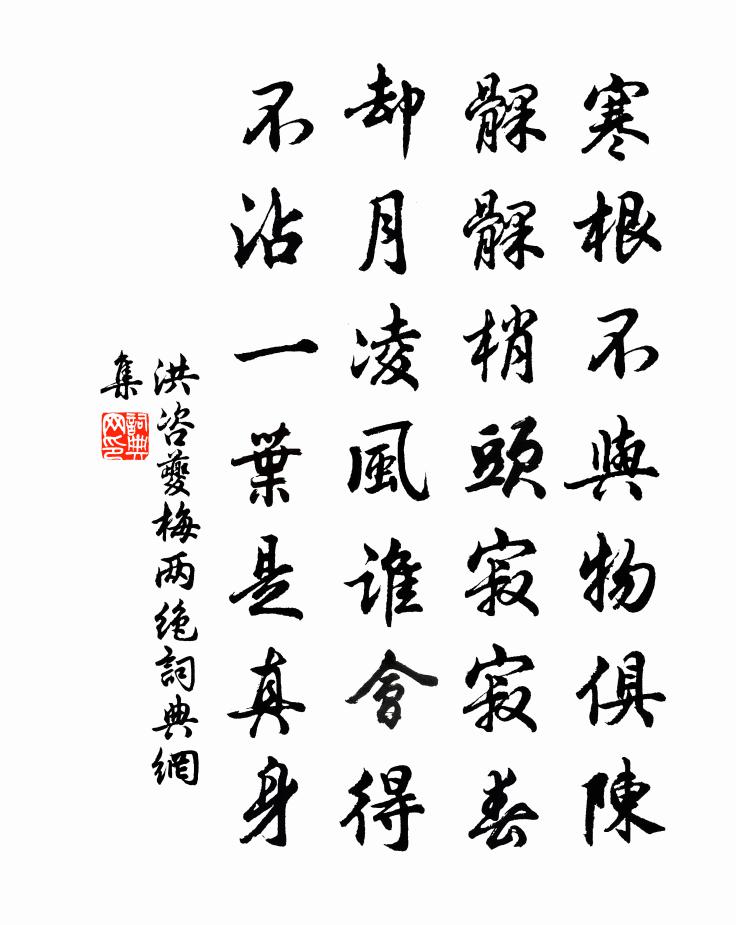 寒根不與物俱陳
髁髁梢頭寂寂春
却月凌風誰會得
不沾一葉是真身
洪咨夔梅两绝詞典網
集
詞典
网印